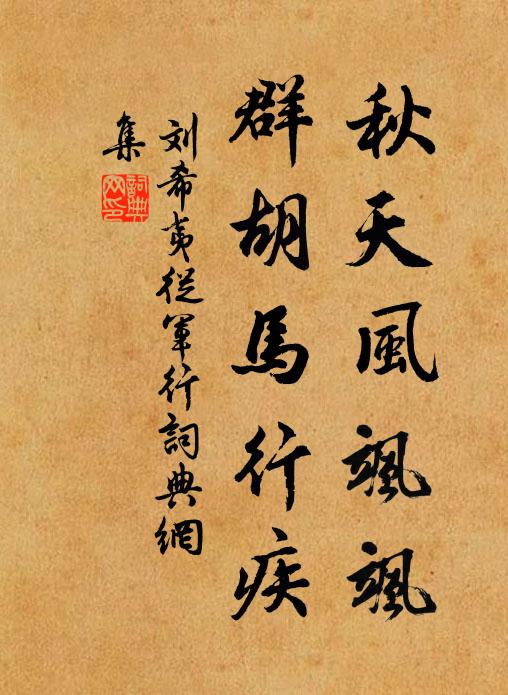 秋天風颯颯
群胡馬行疾
刘希夷從軍行詞典網
集
詞典
网印